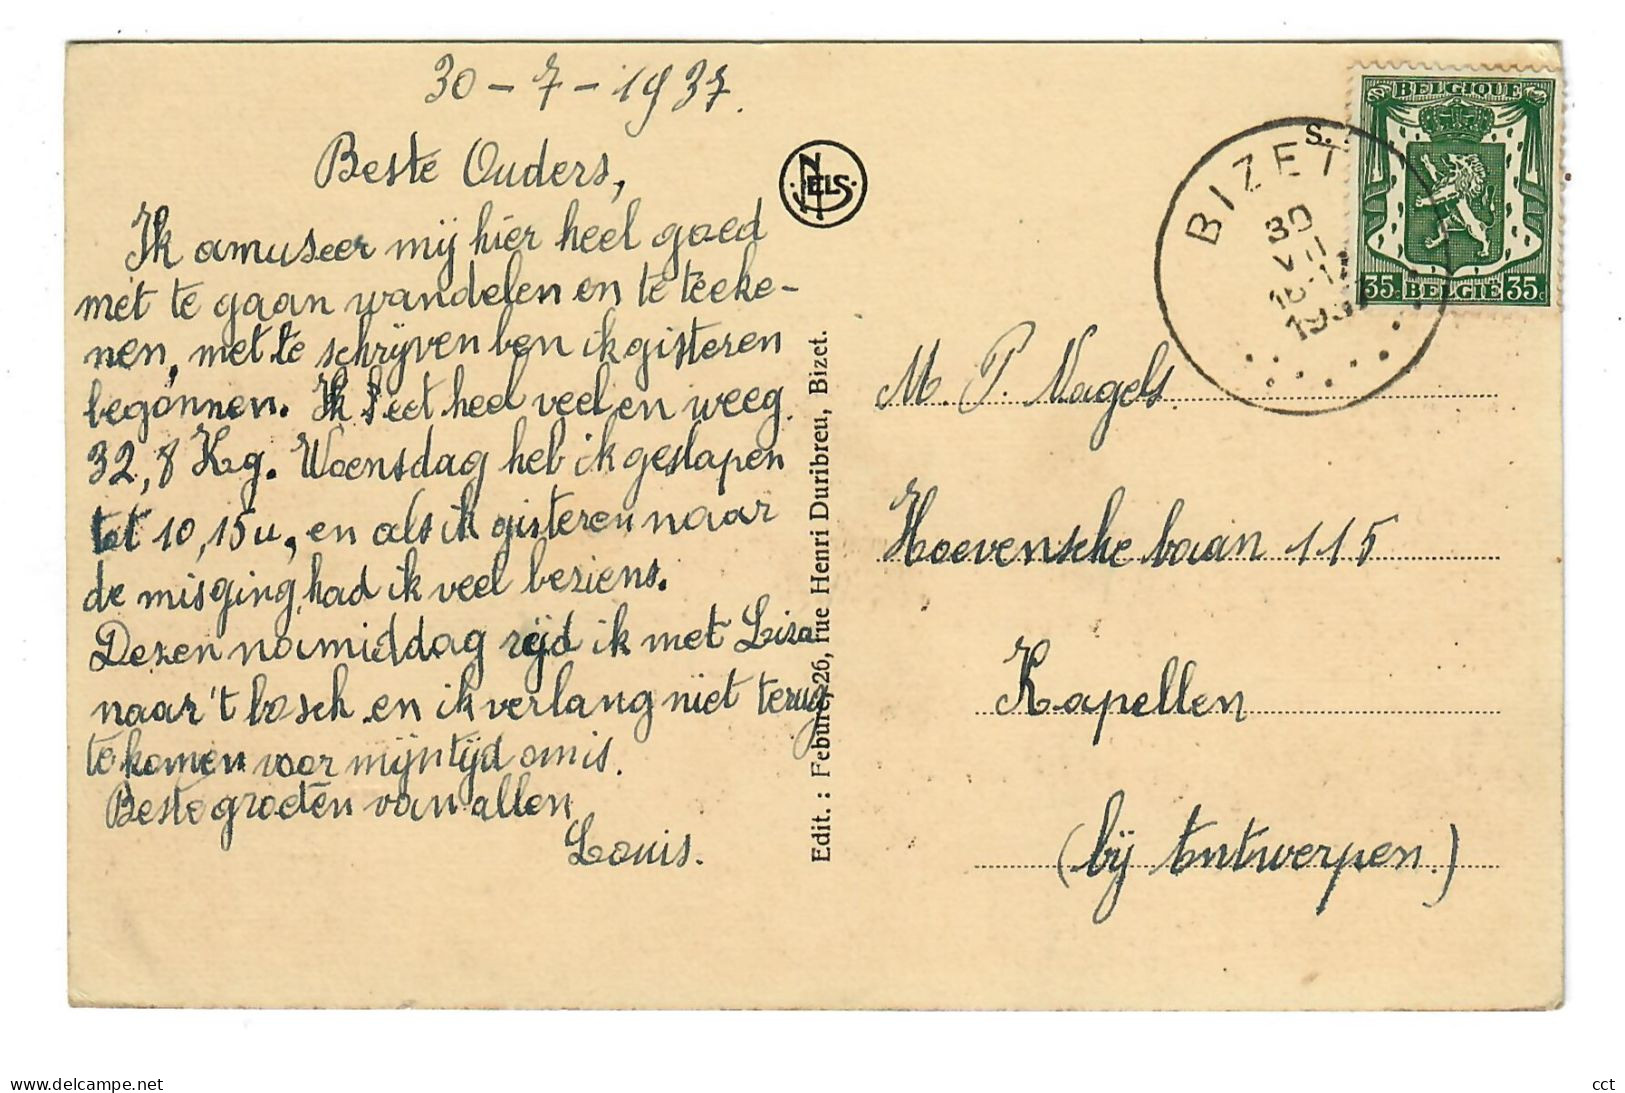 30 - 7 - 1937.
Beste Ouders,
Ik amuseer mij hier heel goed
met te gaan wandelen en te teeke-
nen, met te schrijven ben ik gisteren
begonnen. Ik eet heel veel en weeg
32,8 Kg. Woensdag heb ik geslapen
tot 10,15u, en als ik gisteren naar
de mis ging, had ik veel beziens.
Dezen namiddag rijd ik met Liza
naar 't bosch en ik verlang niet terug
te komen voor mijn tijd om is.
Beste groeten van allen
Louis.
NELS
Edit. : Feburc, 26, rue Henri Duribreu, Bizet.
BELGIQUE
35c BELGIË 35c
BIZET
30
VII
1937
M. P. Nagels.
Hoevensche baan 115
Kapellen
(bij Antwerpen.)
www.delcampe.net
cct